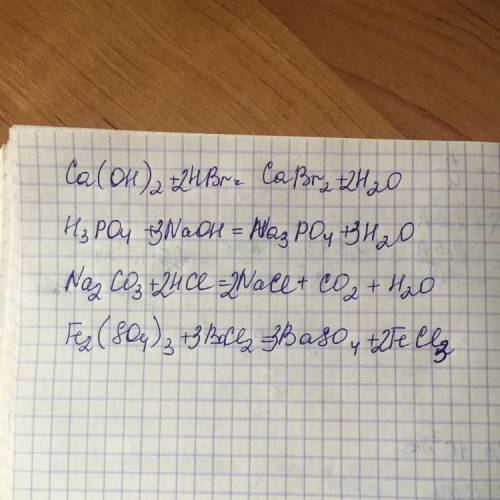 Ca(OH)2 + 2HBr = CaBr2 + 2H2O
H3PO4 + 3NaOH = Na3PO4 + 3H2O
Na2CO3 + 2HCl = 2NaCl + CO2 + H2O
Fe2(SO4)3 + 3BCl2 = 3BaSO4 + 2FeCl3